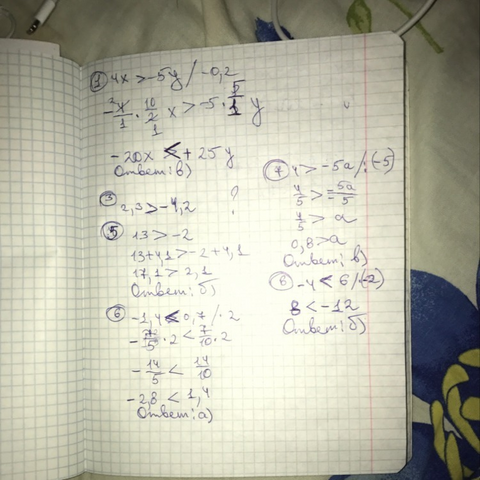 ① 4x > -5y / -0,2
- 4/1 · 10/2 x > -5 · 5/1 y
-20x < +25y
Ответ: в)
③ 2,3 > -4,2 ?
⑤ 13 > -2
13+4,1 > -2+4,1
17,1 > 2,1
Ответ: б)
⑥ -1,4 < 0,7 / · 2
- 7/5 · 2 < 7/10 · 2
- 14/5 < 14/10
-2,8 < 1,4
Ответ: а)
⑦ 4 > -5a / : (-5)
4/5 > = 5a/5
4/5 > a
0,8 > a
Ответ: в)
⑥ -4 < 6 / (-2)
8 < -12
Ответ: б)